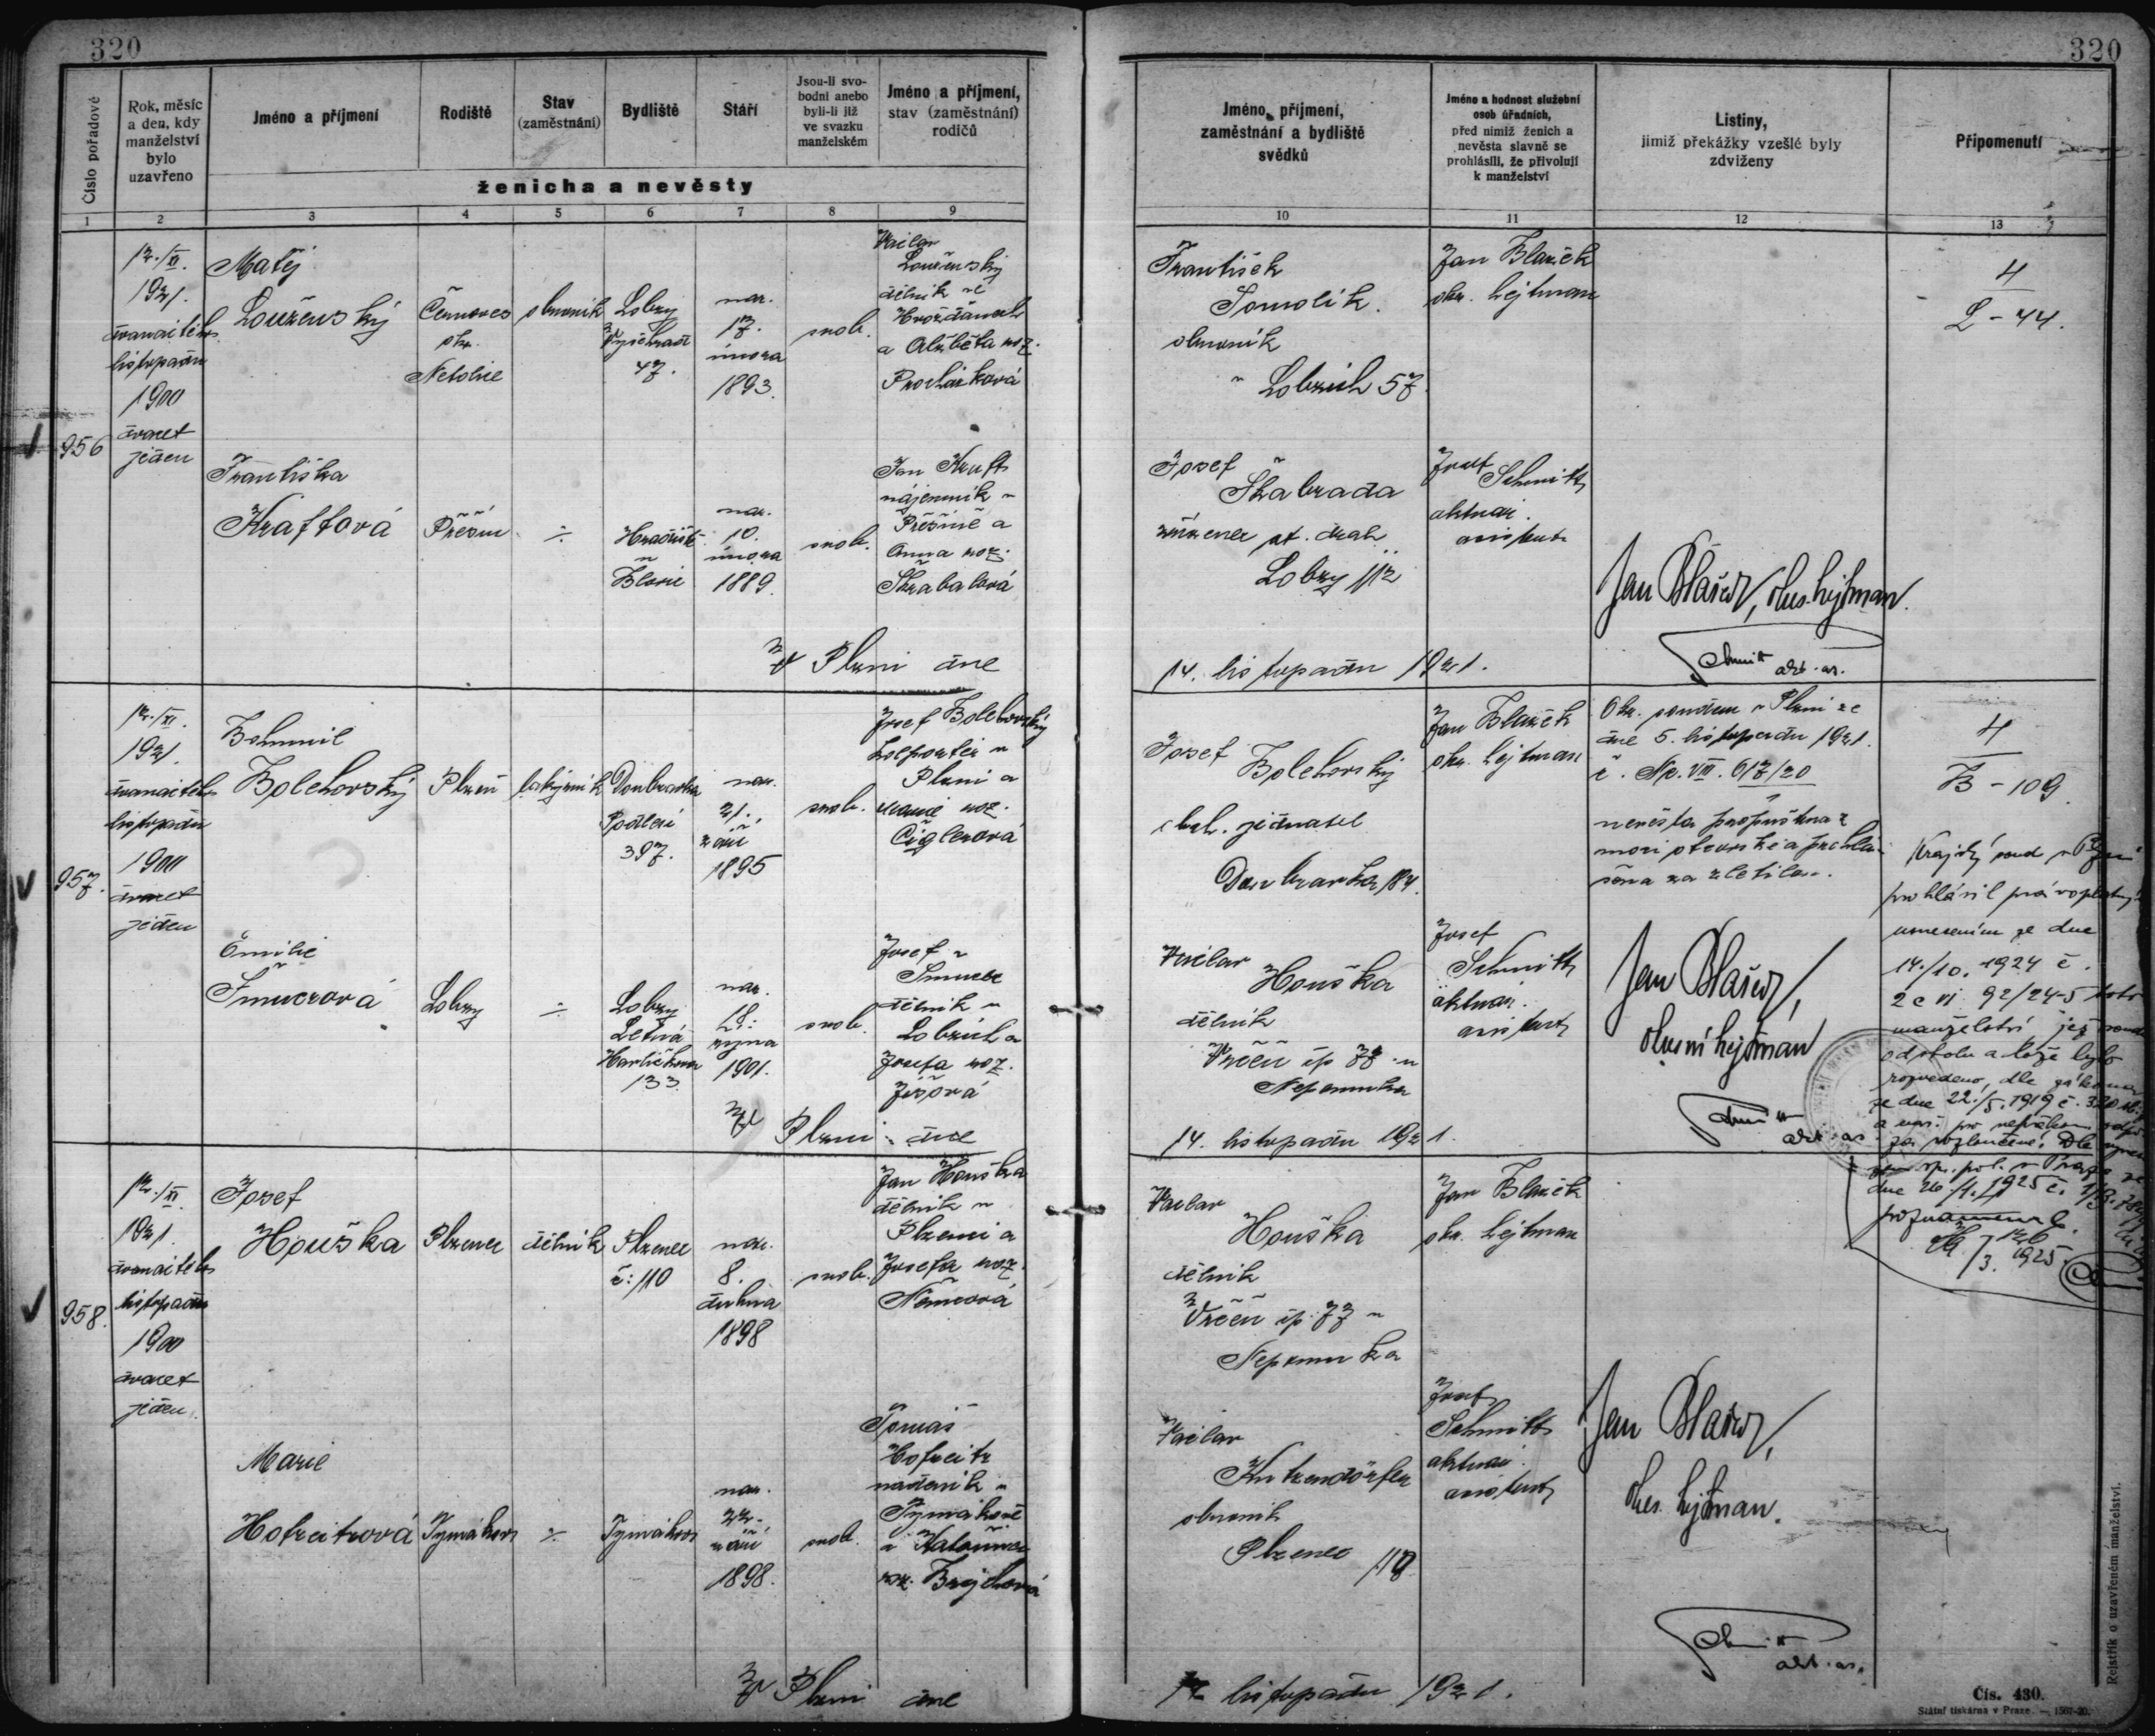 320
320
Číslo pořadové
Rok, měsíc
a den, kdy
manželství
bylo
uzavřeno
Jméno a příjmení
Rodiště
Stav
(zaměstnání)
Bydliště
Stáří
Jsou-li svo-
bodni anebo
byli-li již
ve svazku
manželském
Jméno a příjmení,
stav (zaměstnání)
rodičů
ženicha a nevěsty
1
2
3
4
5
6
7
8
9
Jméno, příjmení,
zaměstnání a bydliště
svědků
Jméno a hodnost služební
osob úřadních,
před nimiž ženich a
nevěsta slavně se
prohlásili, že přivolují
k manželství
Listiny,
jimiž překážky vzešlé byly
zdviženy
Připomenutí
10
11
12
13
956
12./XI.
1921.
dvanáctého
listopadu
1900
dvacet
jeden
Matěj
Louženský
okr.
Netolice
obuvník
Lobzy
Vyšehrad
47.
nar.
17.
února
1893.
svob.
Václav
Louženský
dělník
a Alžběta roz.
Procházková
Františka
Kraftová
Přešín
÷
Hradiště
Blovic
nar.
10.
února
1889.
svob.
Jan Kraft
nájemník v
Přešíně a
Anna roz.
Škrabalová
V Plzni dne
František
obuvník
v Lobzích 57.
Josef
Škabrada
zřízenec st. drah
Lobzy 112
Jan Blažek
okr. hejtman
Josef Schmitt
aktuár.
asistent
Jan Blažek, okres. hejtman.
Schmitt
akt. as.
4
L - 44.
14. listopadu 1921.
957.
12./XI.
1921.
dvanáctého
listopadu
1900
dvacet
jeden
Bohumil
Bolehovský
Plzeň
lakýrník
Doubravka
Podlesí
397.
nar.
21.
září
1895
svob.
Josef Bolehovský
kolportér v
Plzni a
Marie roz.
Ciglerová
Emilie
Šmucrová
Lobzy
÷
Lobzy
Letná
Havlíčkova
133
nar.
28.
října
1901.
svob.
Josef
Šmucr
dělník v
Lobzích a
Josefa roz.
V Plzni dne
Josef
Bolehovský
obch. jednatel
Doubravka 184.
Václav
Houška
dělník
Vrčeň čp 77 u
Nepomuka
Jan Blažek
okr. hejtman
Josef
Schmitt
aktuár.
asistent
Okr. soudem v Plzni ze
dne 5. listopadu 1921.
č. Np. VIII. 617/20
nevěsta propuštěna z
moci otcovské a prohlá-
šena za zletilou.
Jan Blažek,
okresní hejtman
Schmitt
akt. as.
4
B - 109
Krajský soud v Plzni
prohlásil právoplatným
usnesením ze dne
14./10. 1924 č.
2 c VI 92/24-5 toto
manželství, jež
od stolu a lože bylo
rozvedeno, dle zákona
ze dne 22./5. 1919 č. 320
za rozloučené. Dle
v Praze
dne 26/1. 1925 č.
/3. 1925.
14. listopadu 1921.
958.
12./XI.
1921.
dvanáctého
listopadu
1900
dvacet
jeden.
Josef
Houška
Plzenec
dělník
Plzenec
č: 110
nar.
8.
dubna
1898
svob.
Jan Houška
dělník v
Plzenci a
Josefa roz.
Němcová
Marie
Hofreitrová
Tymákov
÷
Tymákov
nar.
22.
září
1898.
svob.
Tomáš
Hofreitr
nádeník v
Tymákově
a Kateřina
roz. Brejchová
V Plzni dne
Václav
Houška
dělník
Vrčeň čp. 77 u
Nepomuka
Václav
obuvník
Plzenec 110
Jan Blažek
okr. hejtman
Josef
Schmitt
aktuár.
asistent
Jan Blažek,
okres. hejtman.
Schmitt
akt. as.
listopadu 1921.
Rejstřík o uzavřeném manželství.
Čís. 430.
Státní tiskárna v Praze. — 1507-20.